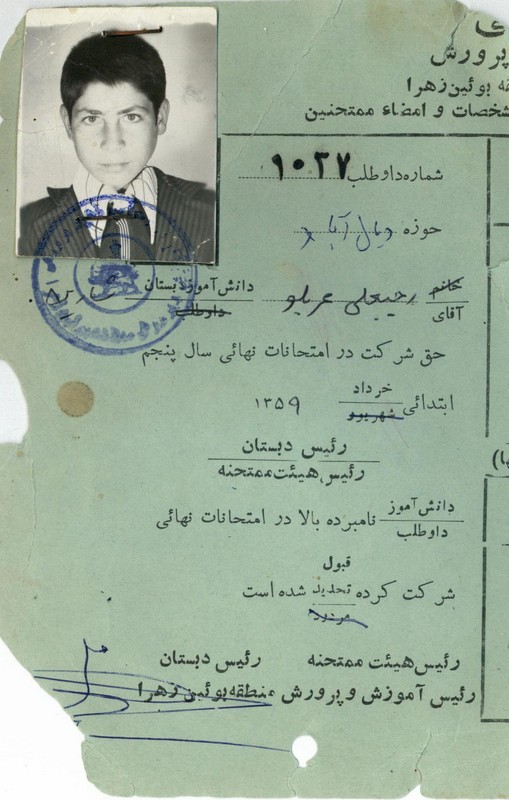 پرورش
بوئین زهرا
مشخصات و امضاء ممتحنین
شماره داوطلب ۱۰۳۷
حوزه
خانم
آقای رجبعلی عربلو دانش‌آموز دبستان
داوطلب
حق شرکت در امتحانات نهائی سال پنجم
ابتدائی خرداد ۱۳۵۹
شهریور
رئیس دبستان
رئیس هیئت ممتحنه
دانش آموز
داوطلب نامبرده بالا در امتحانات نهائی
قبول
شرکت کرده تجدید شده است
مردود
رئیس هیئت ممتحنه رئیس دبستان
رئیس آموزش و پرورش منطقه بوئین زهرا
ها)